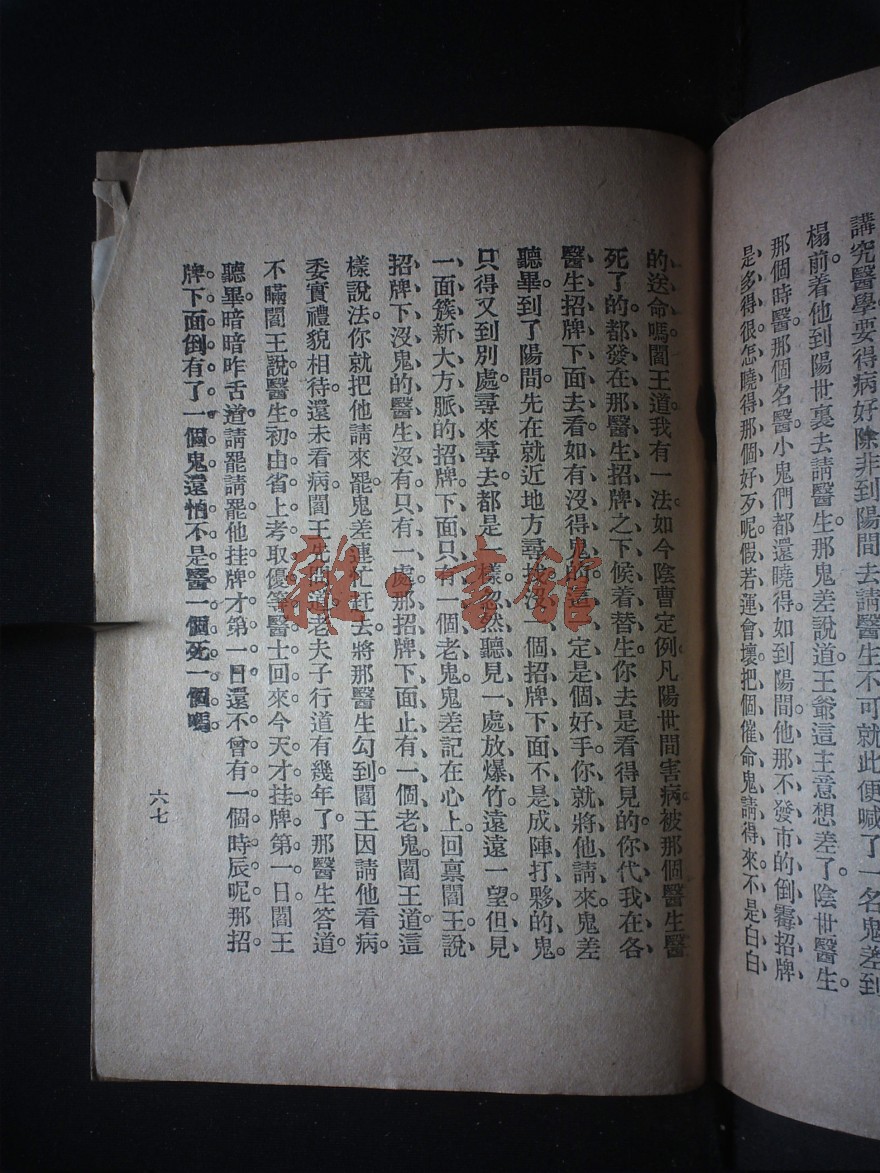 講究醫學要得病好除非到陽間去請醫生不可就此便喊了一名鬼差到
榻前着他到陽世裏去請醫生。那鬼差說道王爺這主意想差了。陰世醫生。
那個時醫那個名醫小鬼們都還曉得。如到陽間他那不發市的倒霉招牌、
是多得很怎曉得那個好歹呢。假若運會壞、把個催命鬼請得來、不是白白
的送命嗎。閻王道我有一法。如今陰曹定例。凡陽世間害病。被那個醫生醫
死了的都發在那醫生招牌之下候着替生。你去是看得見的。你代我在各
醫生招牌下面去看如有沒得鬼的這一定是個好手你就將他請來鬼差
聽畢。到了陽間先在就近地方尋找沒一個招牌下面不是成陣打夥的鬼。
只得又到別處尋來尋去。都是一樣。忽然聽見一處放爆竹遠遠一望但見
一面簇新大方脈的招牌下面只有一個老鬼鬼差記在心上。回禀閻王說
招牌下沒鬼的醫生沒有只有一處那招牌下面止有一個老鬼。閻王道這
樣說法你就把他請來罷。鬼差連忙赶去將那醫生勾到閻王因請他看病。
委實禮貌相待還未看病閻王先問道老夫子行道有幾年了。那醫生答道
不瞞閻王說醫生初由省上考取優等醫士回來今天才挂牌第一日閻王
聽畢。暗暗咋舌道請罷請罷。他挂牌才第一日還不曾有一個時辰呢那招
牌下面倒有了一個鬼還怕不是醫一個死一個嗎。
六七
雜·書館